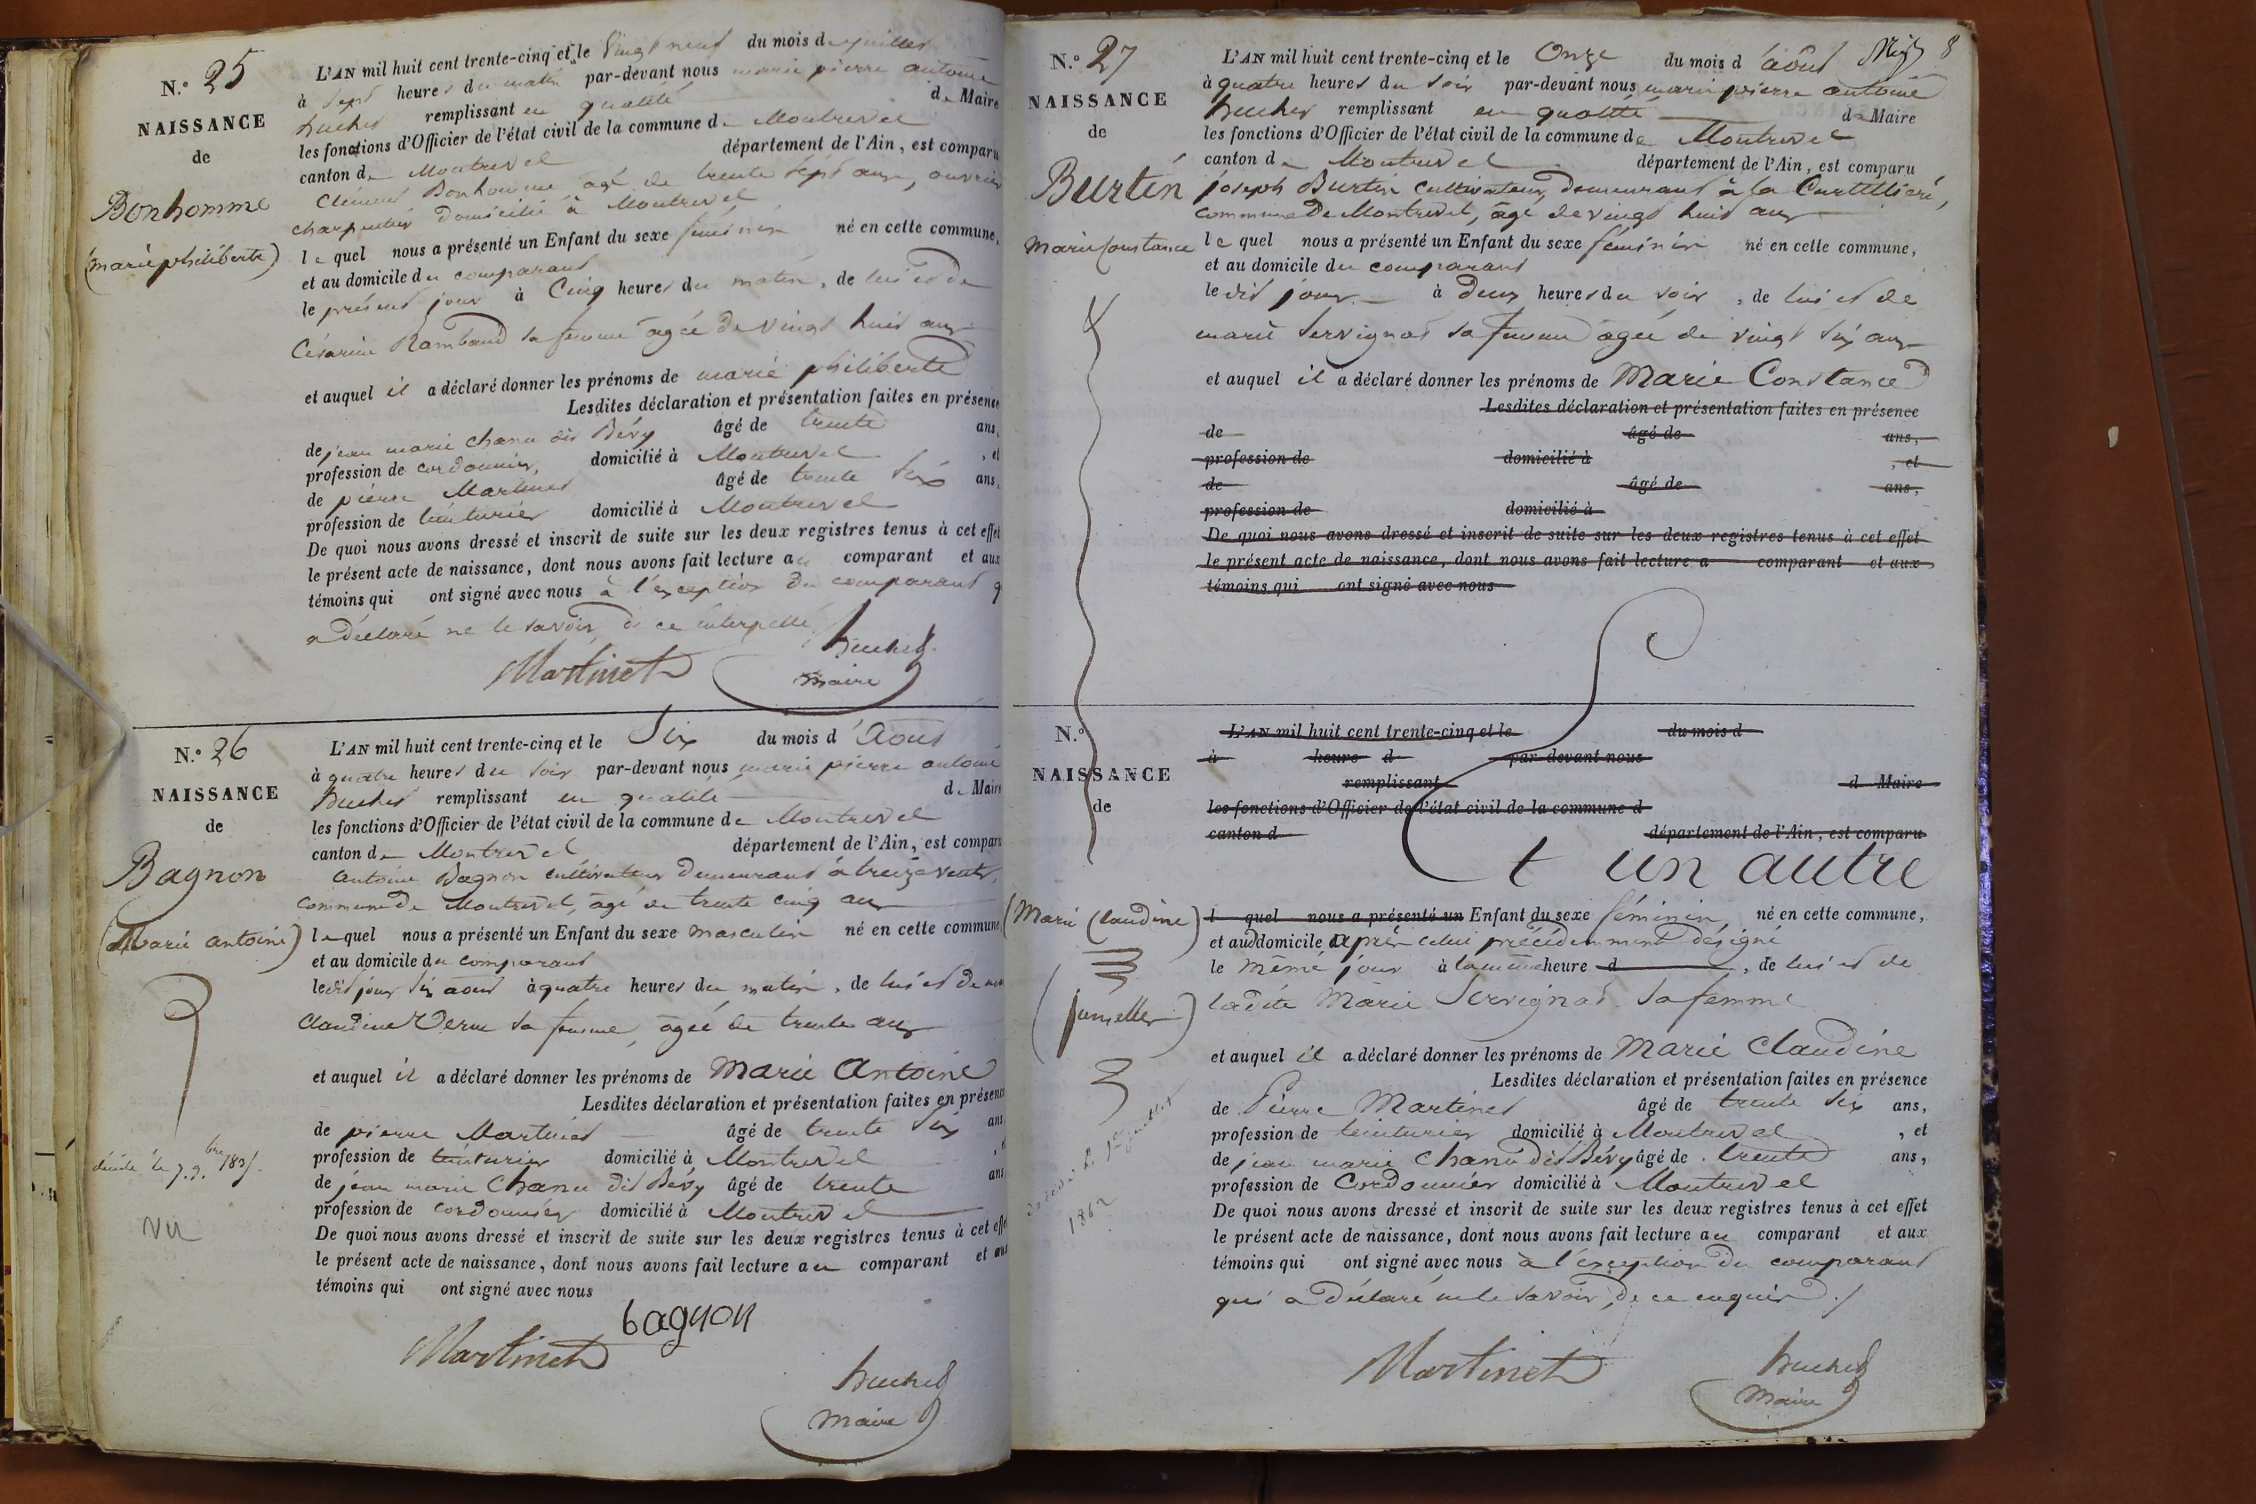 N.° 25
NAISSANCE
de
Bonhomme
(marie philiberte)
L'AN mil huit cent trente-cinq et le vingt neuf du mois de juillet
à sept heures du matin par-devant nous marie pierre antoine
huchet remplissant en qualité de Maire
les fonctions d'Officier de l'état civil de la commune de Montrevel
canton de Montrevel département de l'Ain, est comparu
Clément Bonhomme âgé de trente sept ans, ouvrier
charpentier domicilié à Montrevel
le quel nous a présenté un Enfant du sexe féminin né en cette commune,
et au domicile du comparant
le présent jour à Cinq heures du matin, de lui et de
Césarine Rambaud sa femme âgée de vingt huit ans
et auquel il a déclaré donner les prénoms de marie philiberte
Lesdites déclaration et présentation faites en présence
de jean marie chanu dit Bévy âgé de trente ans,
profession de cordonnier, domicilié à Montrevel, et
de pierre Martinet âgé de trente six ans,
profession de teinturier domicilié à Montrevel
De quoi nous avons dressé et inscrit de suite sur les deux registres tenus à cet effet
le présent acte de naissance, dont nous avons fait lecture au comparant et aux
témoins qui ont signé avec nous à l'exception du comparant q
a déclaré ne le savoir de ce interpellé
huchet
Martinet maire
N.° 26
NAISSANCE
de
Bagnon
(Marie antoine)
décédé le 7. 9.bre 1835.
vu
L'AN mil huit cent trente-cinq et le Six du mois d'Aout
à quatre heures du soir par-devant nous marie pierre antoine
huchet remplissant en qualité de Maire
les fonctions d'Officier de l'état civil de la commune de Montrevel
canton de Montrevel département de l'Ain, est comparu
antoine Bagnon cultivateur demeurant à treize vents,
commune de Montrevel, âgé de trente cinq ans
le quel nous a présenté un Enfant du sexe masculin né en cette commune
et au domicile du comparant
le dit jour six aout à quatre heures du matin, de lui et de
claudine Verne sa femme, âgée de trente ans
et auquel il a déclaré donner les prénoms de Marie Antoine
Lesdites déclaration et présentation faites en présence
de pierre Martinet âgé de trente six ans
profession de teinturier domicilié à Montrevel
de jean marie Chanu dit Bévy âgé de trente ans
profession de cordonnier domicilié à Montrevel
De quoi nous avons dressé et inscrit de suite sur les deux registres tenus à cet effet
le présent acte de naissance, dont nous avons fait lecture au comparant et aux
témoins qui ont signé avec nous
bagnon
Martinet
huchet
Maire
8
N.° 27
NAISSANCE
de
Burtin
Marie Constance
L'AN mil huit cent trente-cinq et le Onze du mois d'août
à quatre heures du soir par-devant nous marie pierre antoine
huchet remplissant en qualité de Maire
les fonctions d'Officier de l'état civil de la commune de Montrevel
canton de Montrevel département de l'Ain, est comparu
joseph Burtin cultivateur, demeurant à la Curtillière,
commune de Montrevel, âgé de vingt huit ans
le quel nous a présenté un Enfant du sexe féminin né en cette commune,
et au domicile du comparant
le dit jour à deux heures du soir, de lui et de
marie Servignat sa femme âgée de vingt six ans
et auquel il a déclaré donner les prénoms de Marie Constance
Lesdites déclaration et présentation faites en présence
de âgé de ans,
profession de domicilié à , et
de âgé de ans,
profession de domicilié à
De quoi nous avons dressé et inscrit de suite sur les deux registres tenus à cet effet
le présent acte de naissance, dont nous avons fait lecture a comparant et aux
témoins qui ont signé avec nous
N.°
NAISSANCE
de
(Marie Claudine)
(jumelles)
décédée le 1er juillet
1862
L'AN mil huit cent trente-cinq et le du mois d
à heure d par-devant nous
remplissant d Maire
les fonctions d'Officier de l'état civil de la commune d
canton d département de l'Ain, est comparu
Et un autre
l quel nous a présenté un Enfant du sexe féminin, né en cette commune,
et au domicile après celui précédemment désigné
le même jour à la même heure d , de lui et de
ladite Marie Servignat sa femme
et auquel il a déclaré donner les prénoms de Marie Claudine
Lesdites déclaration et présentation faites en présence
de Pierre Martinet âgé de trente six ans,
profession de teinturier domicilié à Montrevel, et
de jean marie Chanu dit Bévy âgé de trente ans,
profession de Cordonnier domicilié à Montrevel
De quoi nous avons dressé et inscrit de suite sur les deux registres tenus à cet effet
le présent acte de naissance, dont nous avons fait lecture au comparant et aux
témoins qui ont signé avec nous à l'exception du comparant
qui a déclaré ne le savoir, de ce enquis./
Martinet
huchet
Maire